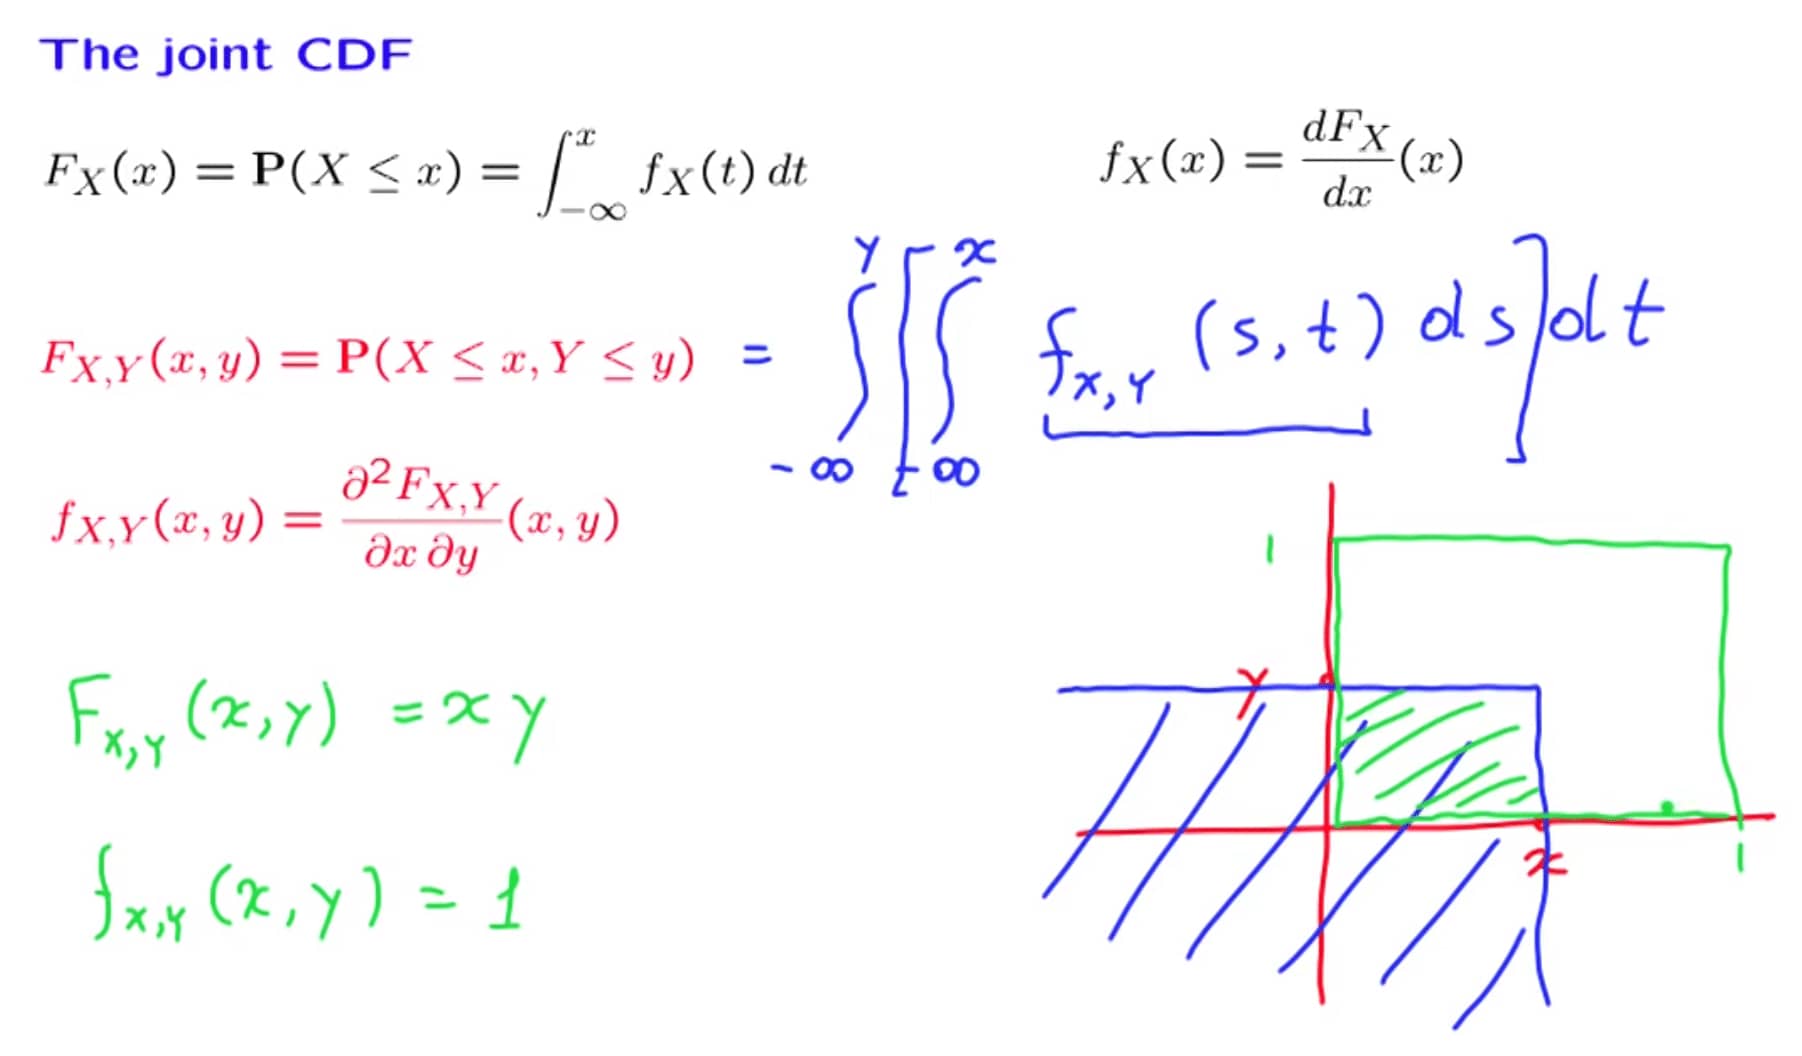 The joint CDF
F_X(x) = P(X ≤ x) = ∫_{-∞}^{x} f_X(t) dt
f_X(x) = dF_X/dx (x)
F_{X,Y}(x, y) = P(X ≤ x, Y ≤ y) = ∫_{-∞}^{y} [∫_{-∞}^{x} f_{X,Y}(s,t) ds] dt
f_{X,Y}(x, y) = ∂²F_{X,Y}/∂x ∂y (x, y)
F_{X,Y}(x,y) = xy
f_{X,Y}(x,y) = 1
1
y
x
1